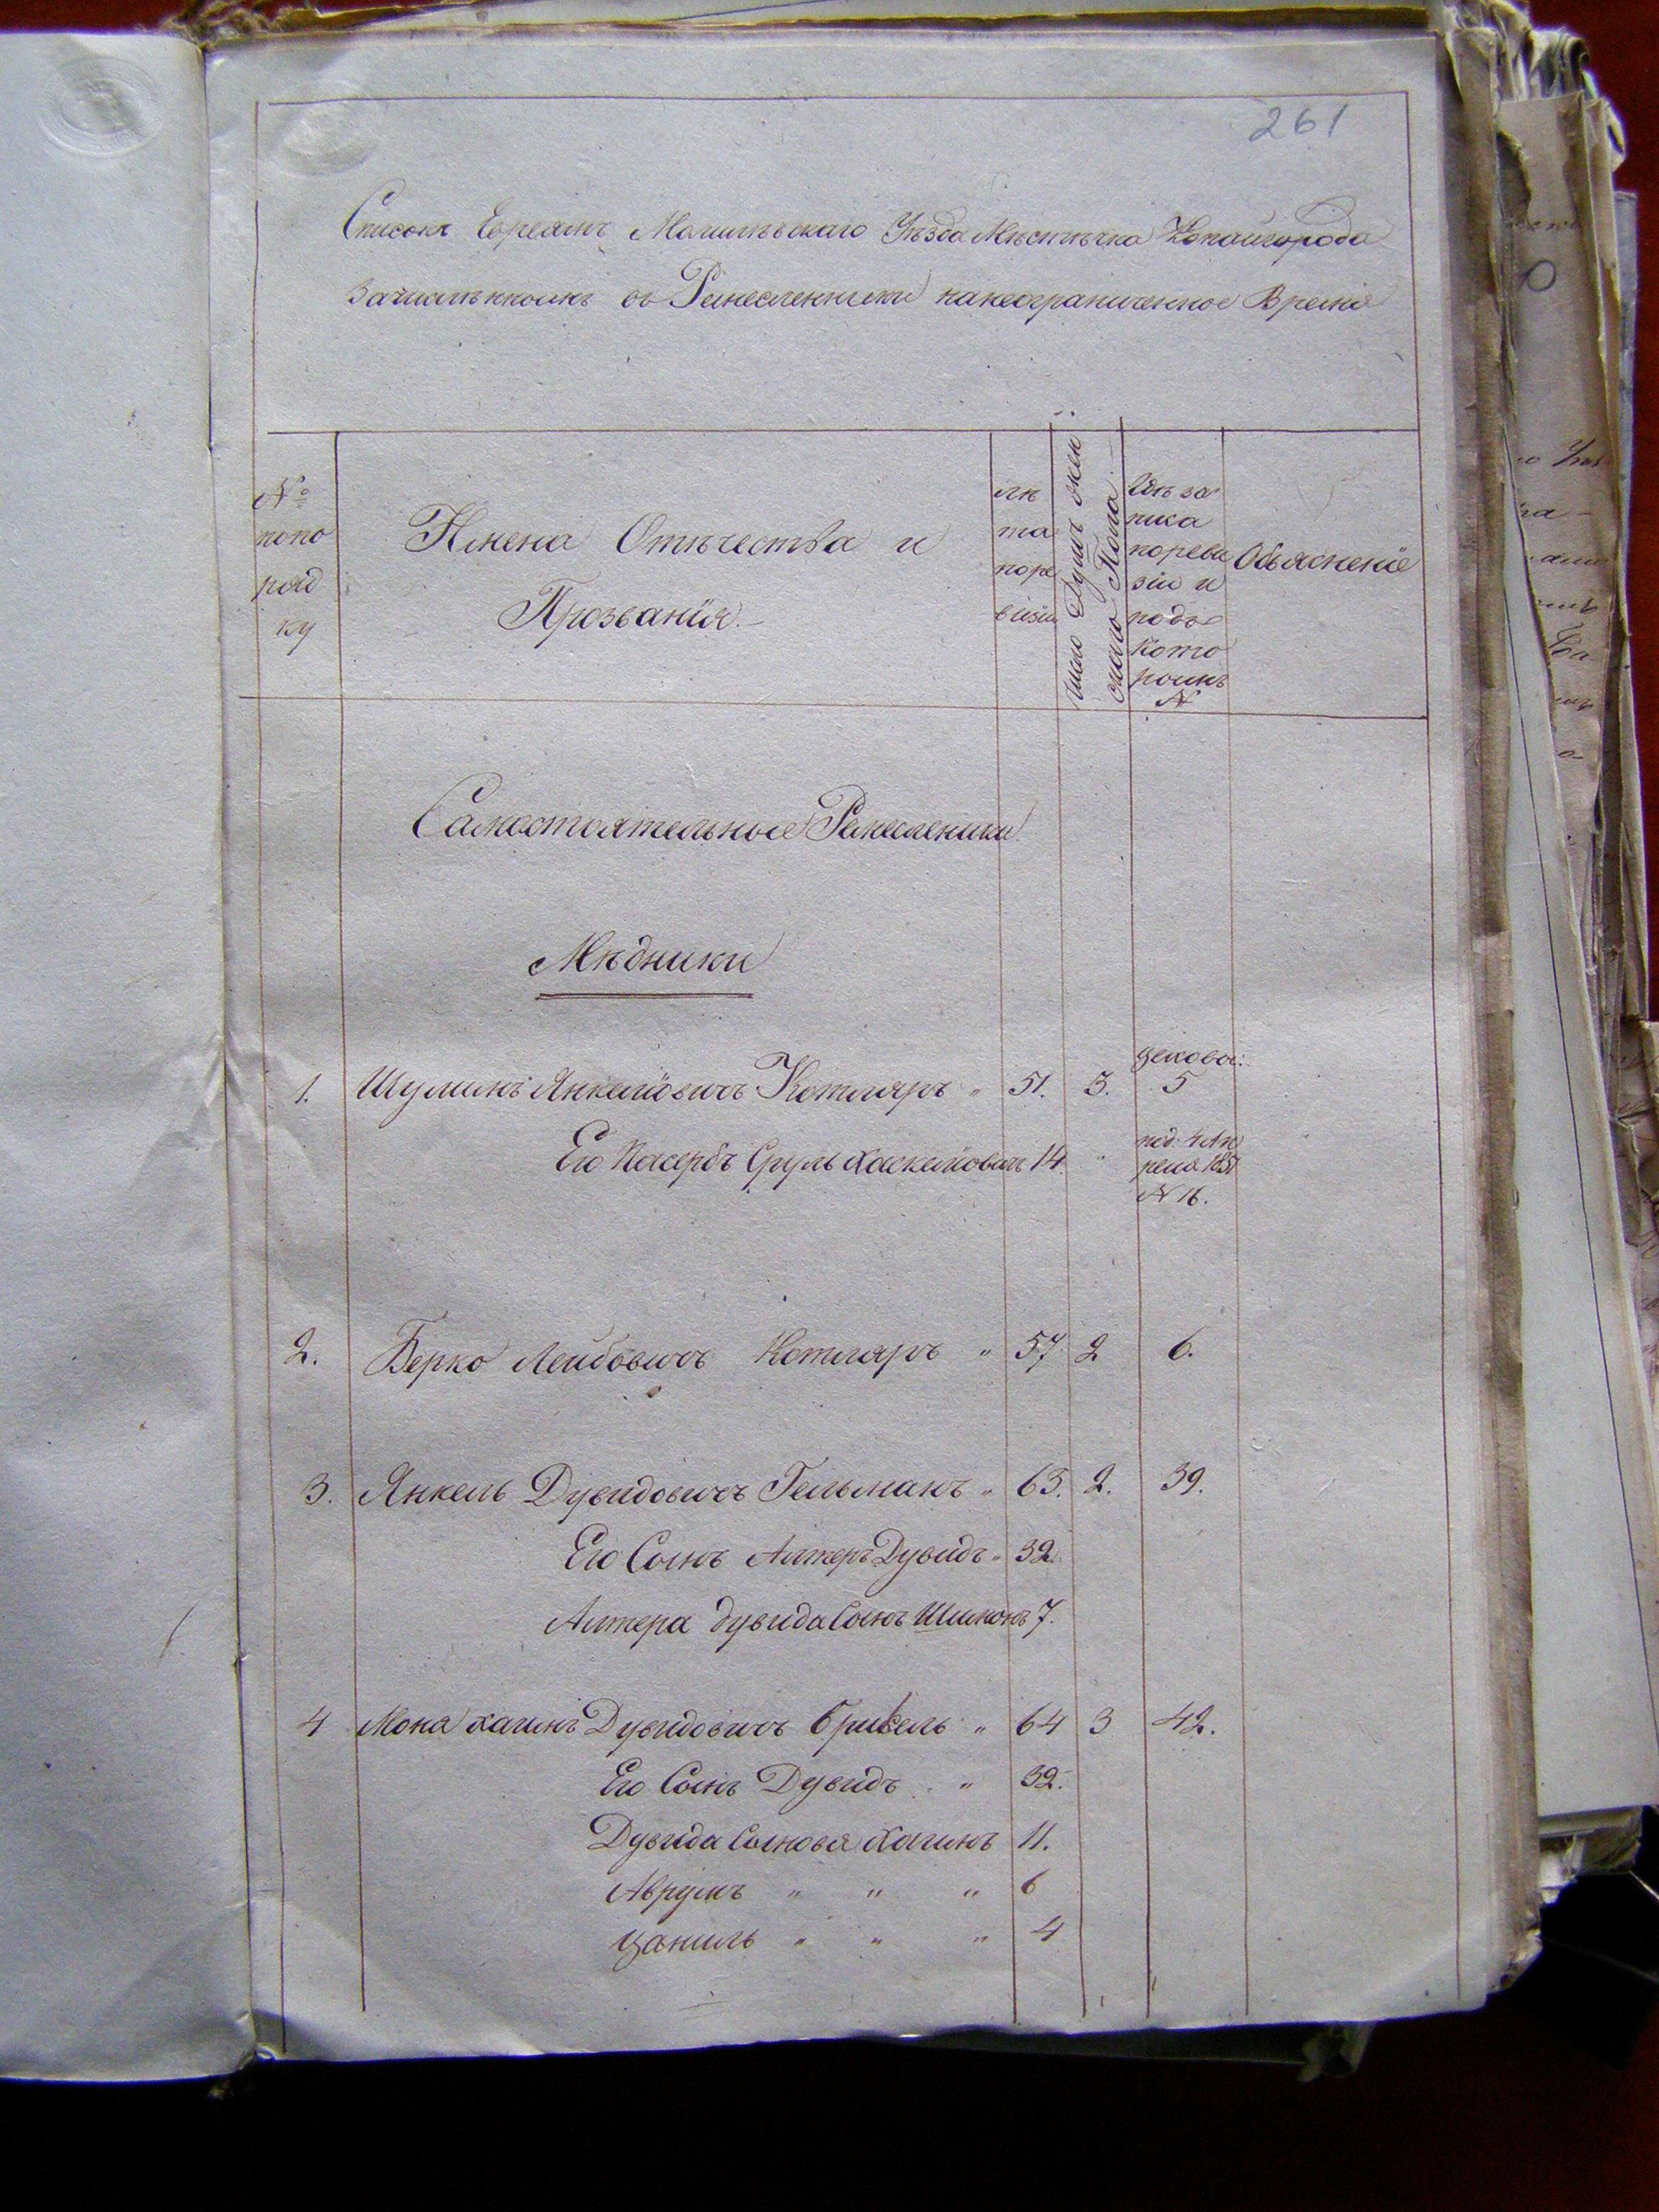 261
Списокъ Евреямъ Могилевскаго Уѣзда Мѣстѣчка Копайгорода
Зачислѣннымъ въ Ремесленники на неограниченное Время
№ попо ряд ку
Имена Отѣчества и Прозванія.
лѣ та поре визіи
число Душъ жен скаго Пола
Гдѣ за писа по реви зіи и подъ кото рымъ №
Объясненіе
Самостоятельные Ремесленики
Мѣдники
1. Шулимъ Янкелiовичъ Котляръ „ 51. 3. цеховы: 5
Его Пасербъ Сруль Хаскелiовичъ 14. „ под. 4 Ап реля 1851 № 16.
2. Берко Лейбовичъ Котляръ „ 57 2 6.
3. Янкель Дувидовичъ Гельманъ „ 63. 2. 39.
Его Сынъ Алтеръ Дувидъ „ 32.
Алтера Дувида Сынъ Шимонъ 7.
4 Мона Хаимъ Дувидовичъ „ 64 3 42.
Его Сынъ Дувидъ „ 32.
Дувида Сыновья Хаимъ 11.
Аврумъ „ „ „ 6
Даниль „ „ „ 4